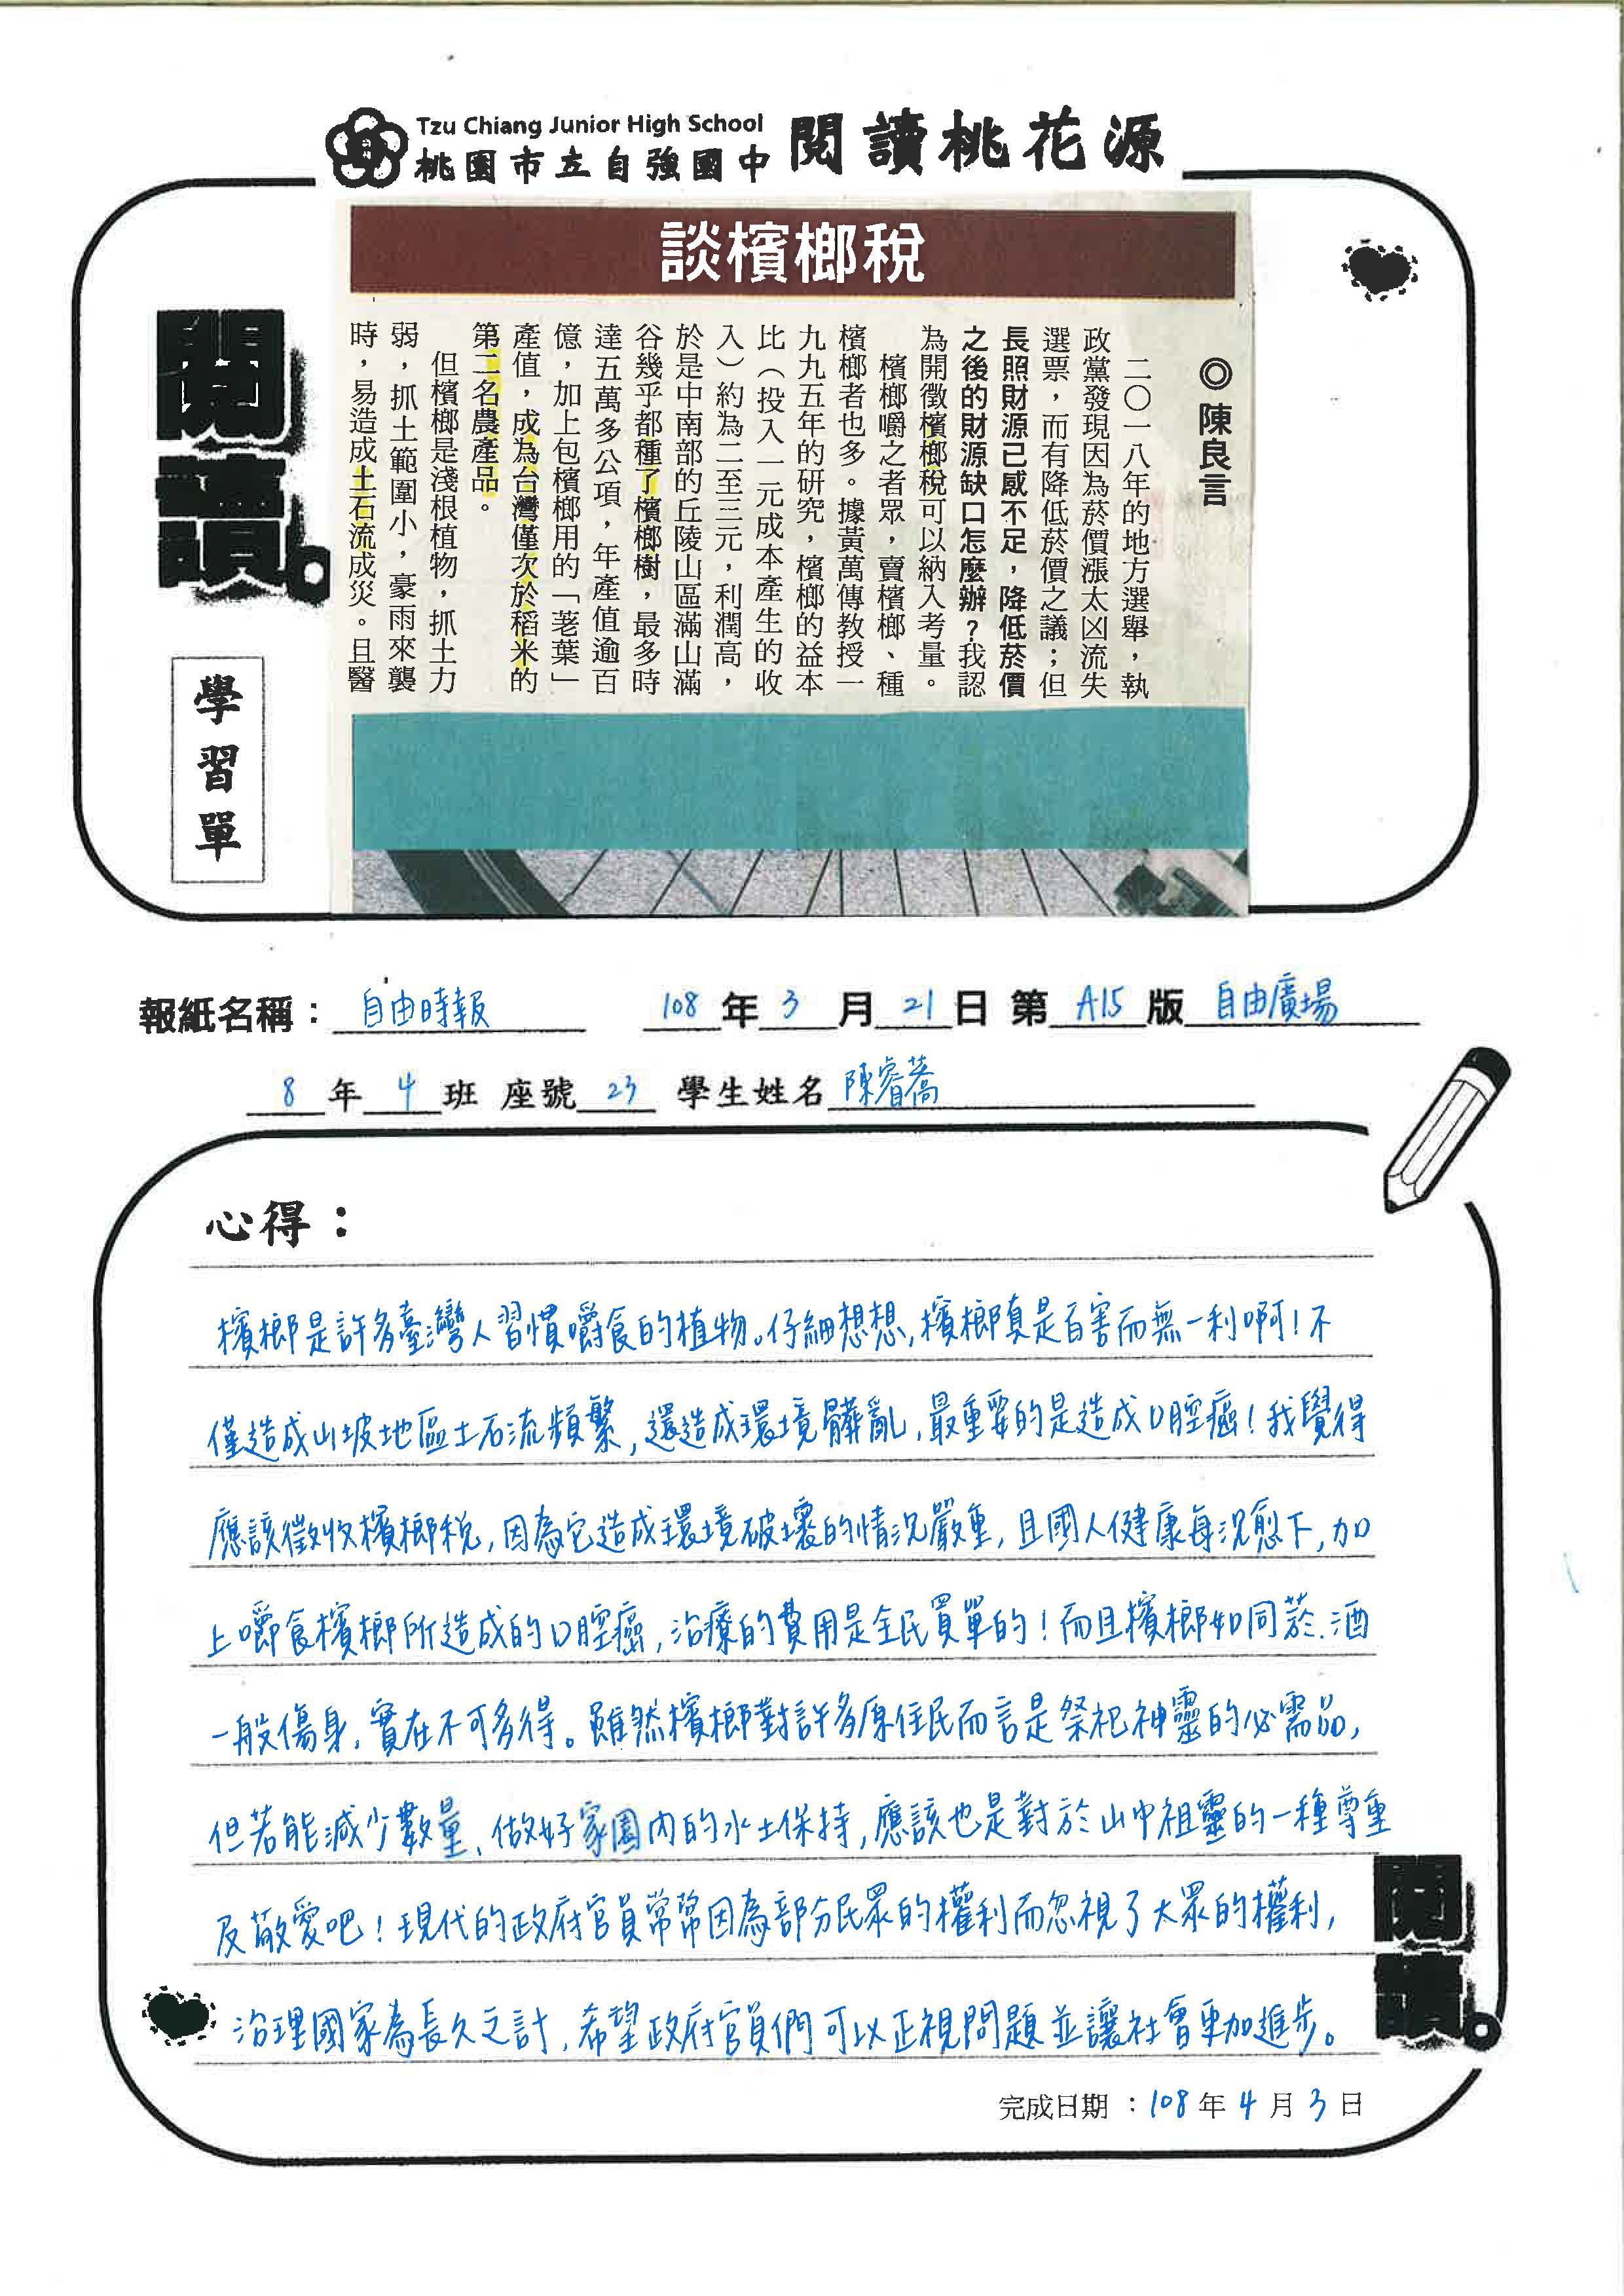 Tzu Chiang Junior High School
桃園市立自強國中
閱讀桃花源
閱讀。
學習單
談檳榔稅
◎陳良言
二〇一八年的地方選舉，執
政黨發現因為菸價漲太凶流失
選票，而有降低菸價之議；但
長照財源已感不足，降低菸價
之後的財源缺口怎麼辦？我認
為開徵檳榔稅可以納入考量。
檳榔嚼之者眾，賣檳榔、種
檳榔者也多。據黃萬傳教授一
九九五年的研究，檳榔的益本
比（投入一元成本產生的收
入）約為二至三元，利潤高，
於是中南部的丘陵山區滿山滿
谷幾乎都種了檳榔樹，最多時
達五萬多公項，年產值逾百
億，加上包檳榔用的「荖葉」
產值，成為台灣僅次於稻米的
第二名農產品。
但檳榔是淺根植物，抓土力
弱，抓土範圍小，豪雨來襲
時，易造成土石流成災。且醫
報紙名稱：自由時報 108年3月21日 第A15版 自由廣場
8年4班 座號23 學生姓名 陳睿蕎
心得：
檳榔是許多臺灣人習慣嚼食的植物。仔細想想，檳榔真是百害而無一利啊！不
僅造成山坡地區土石流頻繁，還造成環境髒亂，最重要的是造成口腔癌！我覺得
應該徵收檳榔稅，因為它造成環境破壞的情況嚴重，且國人健康每況愈下，加
上嚼食檳榔所造成的口腔癌，治療的費用是全民買單的！而且檳榔如同菸、酒
一般傷身，實在不可多得。雖然檳榔對許多原住民而言是祭祀神靈的必需品，
但若能減少數量、做好家園內的水土保持，應該也是對於山中祖靈的一種尊重
及敬愛吧！現代的政府官員常常因為部分民眾的權利而忽視了大眾的權利，
治理國家為長久之計，希望政府官員們可以正視問題並讓社會更加進步。
閱讀。
完成日期：108年4月3日